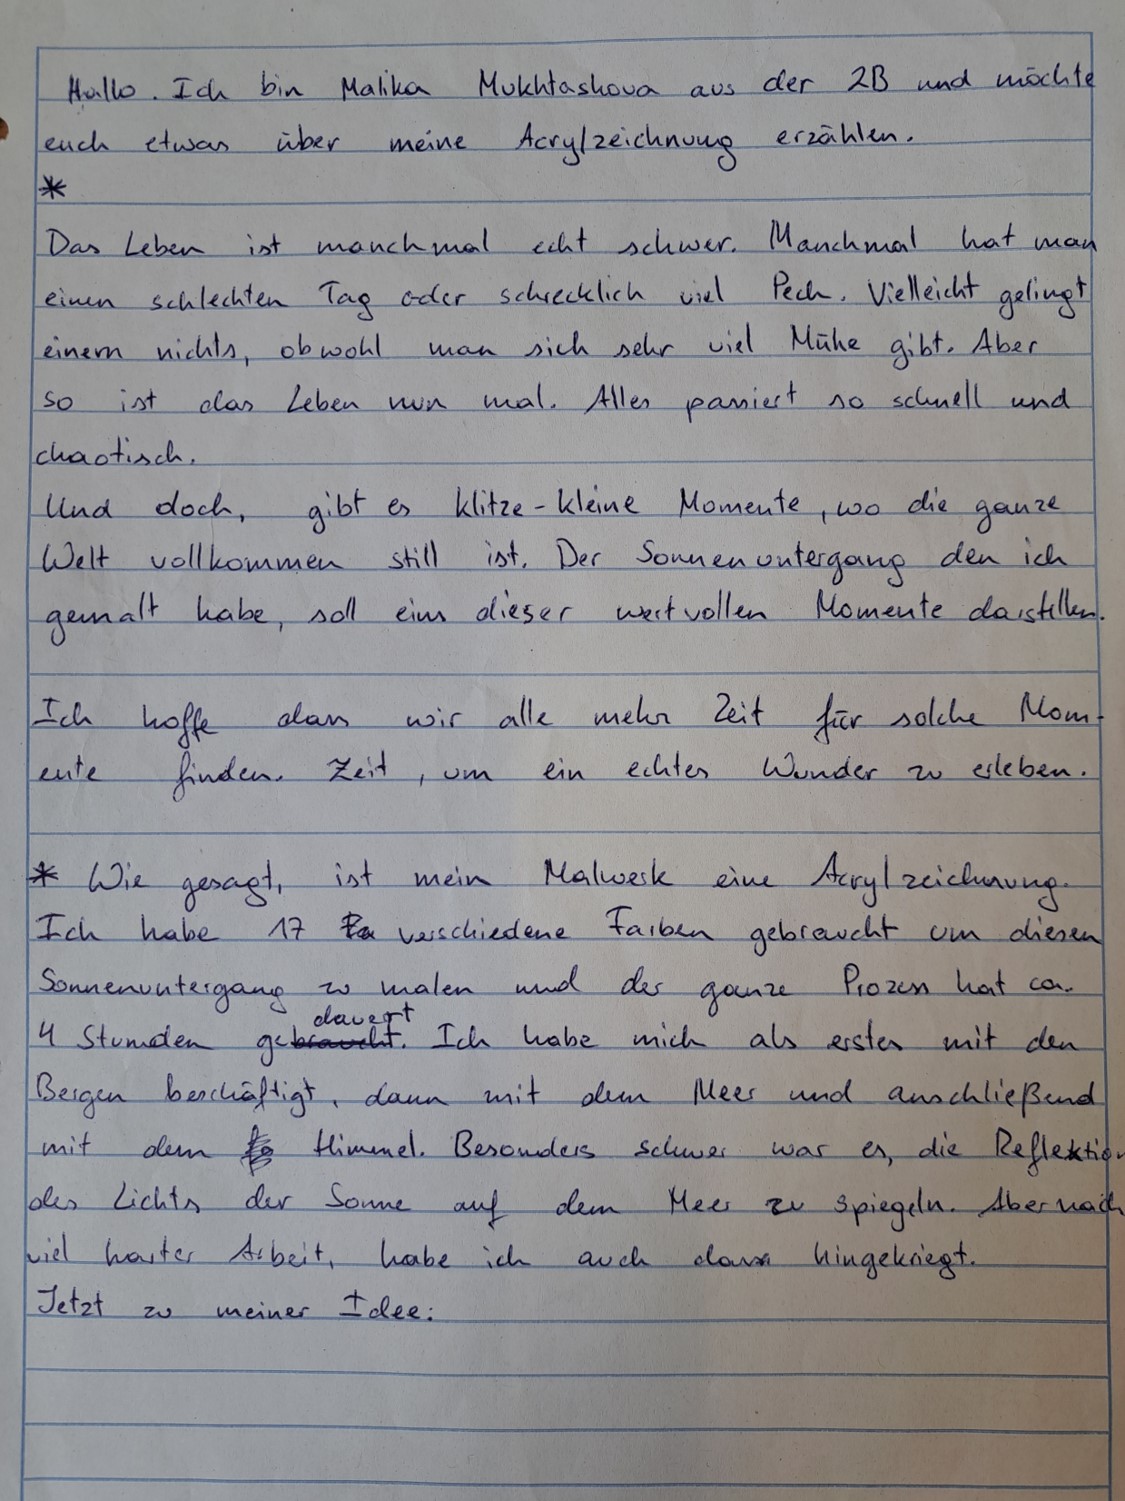 Hallo. Ich bin Malika Mukhtashova aus der 2B und möchte
euch etwas über meine Acrylzeichnung erzählen.
*
Das Leben ist manchmal echt schwer. Manchmal hat man
einen schlechten Tag oder schrecklich viel Pech. Vielleicht gelingt
einem nichts, obwohl man sich sehr viel Mühe gibt. Aber
so ist das Leben nun mal. Alles passiert so schnell und
chaotisch.
Und doch, gibt es klitze-kleine Momente, wo die ganze
Welt vollkommen still ist. Der Sonnenuntergang den ich
gemalt habe, soll eins dieser wertvollen Momente darstellen.
Ich hoffe dass wir alle mehr Zeit für solche Mom-
ente finden. Zeit, um ein echtes Wunder zu erleben.
* Wie gesagt, ist mein Malwerk eine Acrylzeichnung.
Ich habe 17 verschiedene Farben gebraucht um diesen
Sonnenuntergang zu malen und der ganze Prozess hat ca.
4 Stunden gedauert. Ich habe mich als erstes mit den
Bergen beschäftigt, dann mit dem Meer und anschließend
mit dem Himmel. Besonders schwer war es, die Reflektion
des Lichts der Sonne auf dem Meer zu spiegeln. Aber nach
viel harter Arbeit, habe ich auch dass hingekriegt.
Jetzt zu meiner Idee: